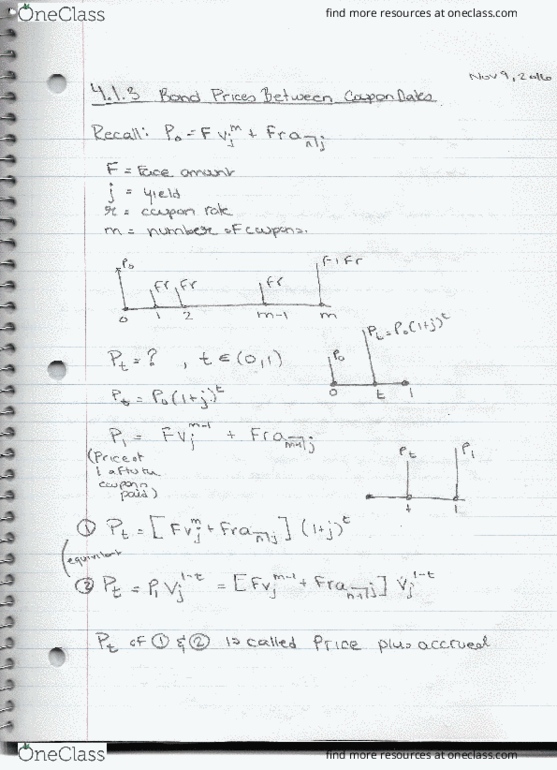 OneClass find more resources at oneclass.com
Nov 9, 2016
4.1.3 Bond Prices Between Coupon Dates
Recall: P₀ = F vⱼᵐ + Fr a n̅|j
F = Face amount
j = yield
r = coupon rate
m = number of coupons.
P₀ Fr Fr Fr F+Fr
0 1 2 m-1 m
Pₜ = ? , t ∈ (0,1)
P₀ Pₜ = P₀(1+j)ᵗ
0 t 1
Pₜ = P₀(1+j)ᵗ
P₁ = F vⱼᵐ⁻¹ + Fr a m-1|j
(Price at
1 after the
coupon
paid)
Pₜ P₁
t 1
① Pₜ = [F vⱼᵐ + Fr a n|j] (1+j)ᵗ
(equivalent
② Pₜ = P₁ Vⱼ¹⁻ᵗ = [F vⱼᵐ⁻¹ + Fr a n-1|j] Vⱼ¹⁻ᵗ
Pₜ of ① & ② is called Price plus accrued
OneClass find more resources at oneclass.com